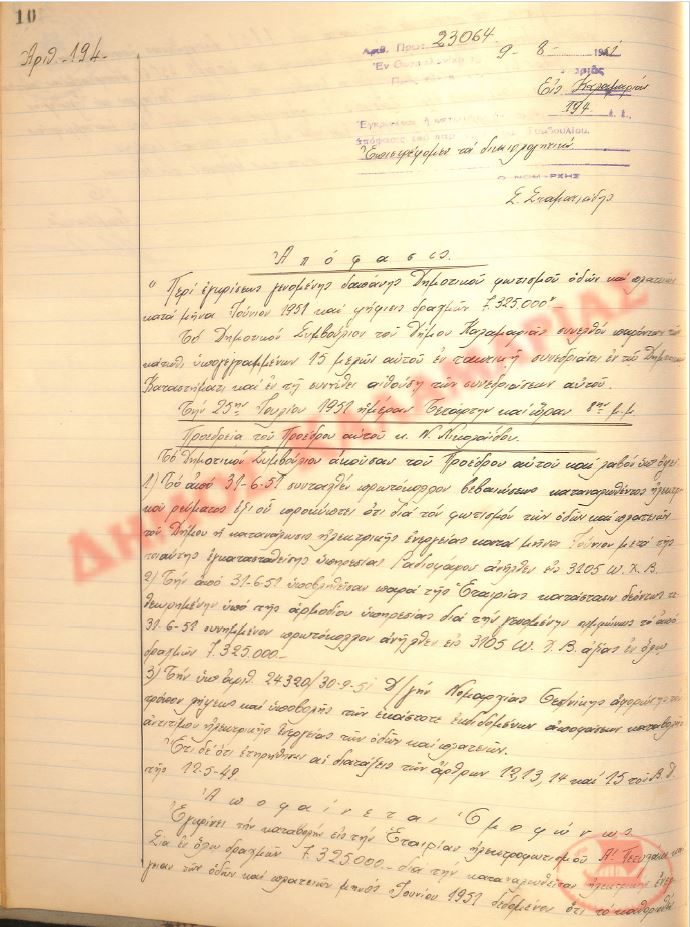 10
Αριθ. 194-
Αριθ. Πρωτ. 23064
Ἐν Θεσσαλονίκῃ τῇ 9-8-1951
Πρὸς
Εἰς Καλαμαριὰν
194
Ἐγκρίνεται ἡ
ἀπόφασις τοῦ Συμβουλίου.
Ἐπιστρέφομεν τὰ δικαιολογητικά.
Ο ΝΟΜΑΡΧΗΣ
Σ. Σταματιάδης
Ἀπόφασις.
"Περὶ ἐγκρίσεως γενομένης δαπάνης Δημοτικοῦ φωτισμοῦ ὁδῶν καὶ πλατειῶν
κατὰ μῆνα Ἰούνιον 1951 καὶ ψήφισις δραχμῶν 7.325.000"
Τὸ Δημοτικὸν Συμβούλιον τοῦ Δήμου Καλαμαριᾶς συνελθὸν παρόντων τῶν
κάτωθι ὑπογεγραμμένων 15 μελῶν αὐτοῦ ἐν τακτικῇ συνεδριάσει ἐν τῷ Δημοτικῷ
Καταστήματι καὶ ἐν τῇ συνήθει αἰθούσῃ τῶν συνεδριάσεων αὐτοῦ.
Τὴν 25ην Ἰουλίου 1951 ἡμέραν Τετάρτην καὶ ὥραν 8ην μ.μ.
Προεδρείᾳ τοῦ Προέδρου αὐτοῦ κ. Ν. Νικολαΐδου.
Τὸ Δημοτικὸν Συμβούλιον ἀκοῦσαν τοῦ Προέδρου αὐτοῦ καὶ λαβὸν ὑπ' ὄψει
1) Τὸ ἀπὸ 31-6-51 συνταχθὲν πρωτόκολλον βεβαιώσεως καταναλωθέντος ἠλεκτρι-
κοῦ ρεύματος ἐξ οὗ προκύπτει ὅτι διὰ τὸν φωτισμὸν τῶν ὁδῶν καὶ πλατειῶν
τοῦ Δήμου ἡ κατανάλωσις ἠλεκτρικῆς ἐνεργείας κατὰ μῆνα Ἰούνιον μετὰ τῆς
τοιαύτης ἐγκατασταθείσης ὑπηρεσίας Ραδιοφάρου ἀνῆλθεν εἰς 3105 W.X.B.
2) Τὴν ἀπὸ 31-6-51 ὑποβληθεῖσαν παρὰ τῆς Ἑταιρίας κατάστασιν δεόντως τε-
θεωρημένην ὑπὸ τῆς ἁρμοδίου ὑπηρεσίας διὰ τὴν γενομένην συμφώνως τὸ ἀπὸ
31-6-51 συνημμένον πρωτόκολλον ἀνῆλθεν εἰς 3105 W.X.B. ἀξίας ἐν ὅλῳ
δραχμῶν 7.325.000-
3) Τὴν ὑπ' ἀριθ. 24320/30-9-51 Δ/γὴν Νομαρχίας ἀφορῶσαν τὸν
τρόπον λήψεως καὶ ὑποβολῆς τῶν ἑκάστοτε ἐκδιδομένων ἀποφάσεων καταβολῆς
ἀντιτίμου ἠλεκτρικῆς ἐνεργείας τῶν ὁδῶν καὶ πλατειῶν.
Ἔτι δὲ ὅτι ἐτηρήθησαν αἱ διατάξεις τῶν ἄρθρων 12, 13, 14 καὶ 15 τοῦ Β.Δ.
τῆς 12-5-49
Ἀποφαίνεται Ὁμοφώνως
Ἐγκρίνει τὴν καταβολὴν εἰς τὴν Ἑταιρίαν ἠλεκτροφωτισμοῦ
διὰ ἐν ὅλῳ δραχμῶν 7.325.000- διὰ τὴν καταναλωθεῖσαν ἠλεκτρικὴν ἐνέρ-
γειαν τῶν ὁδῶν καὶ πλατειῶν μηνὸς Ἰουνίου 1951 δεδομένου ὅτι τὸ καθορισθὲν
ΔΗΜΟΣ ΚΑΛΑΜΑΡΙΑΣ